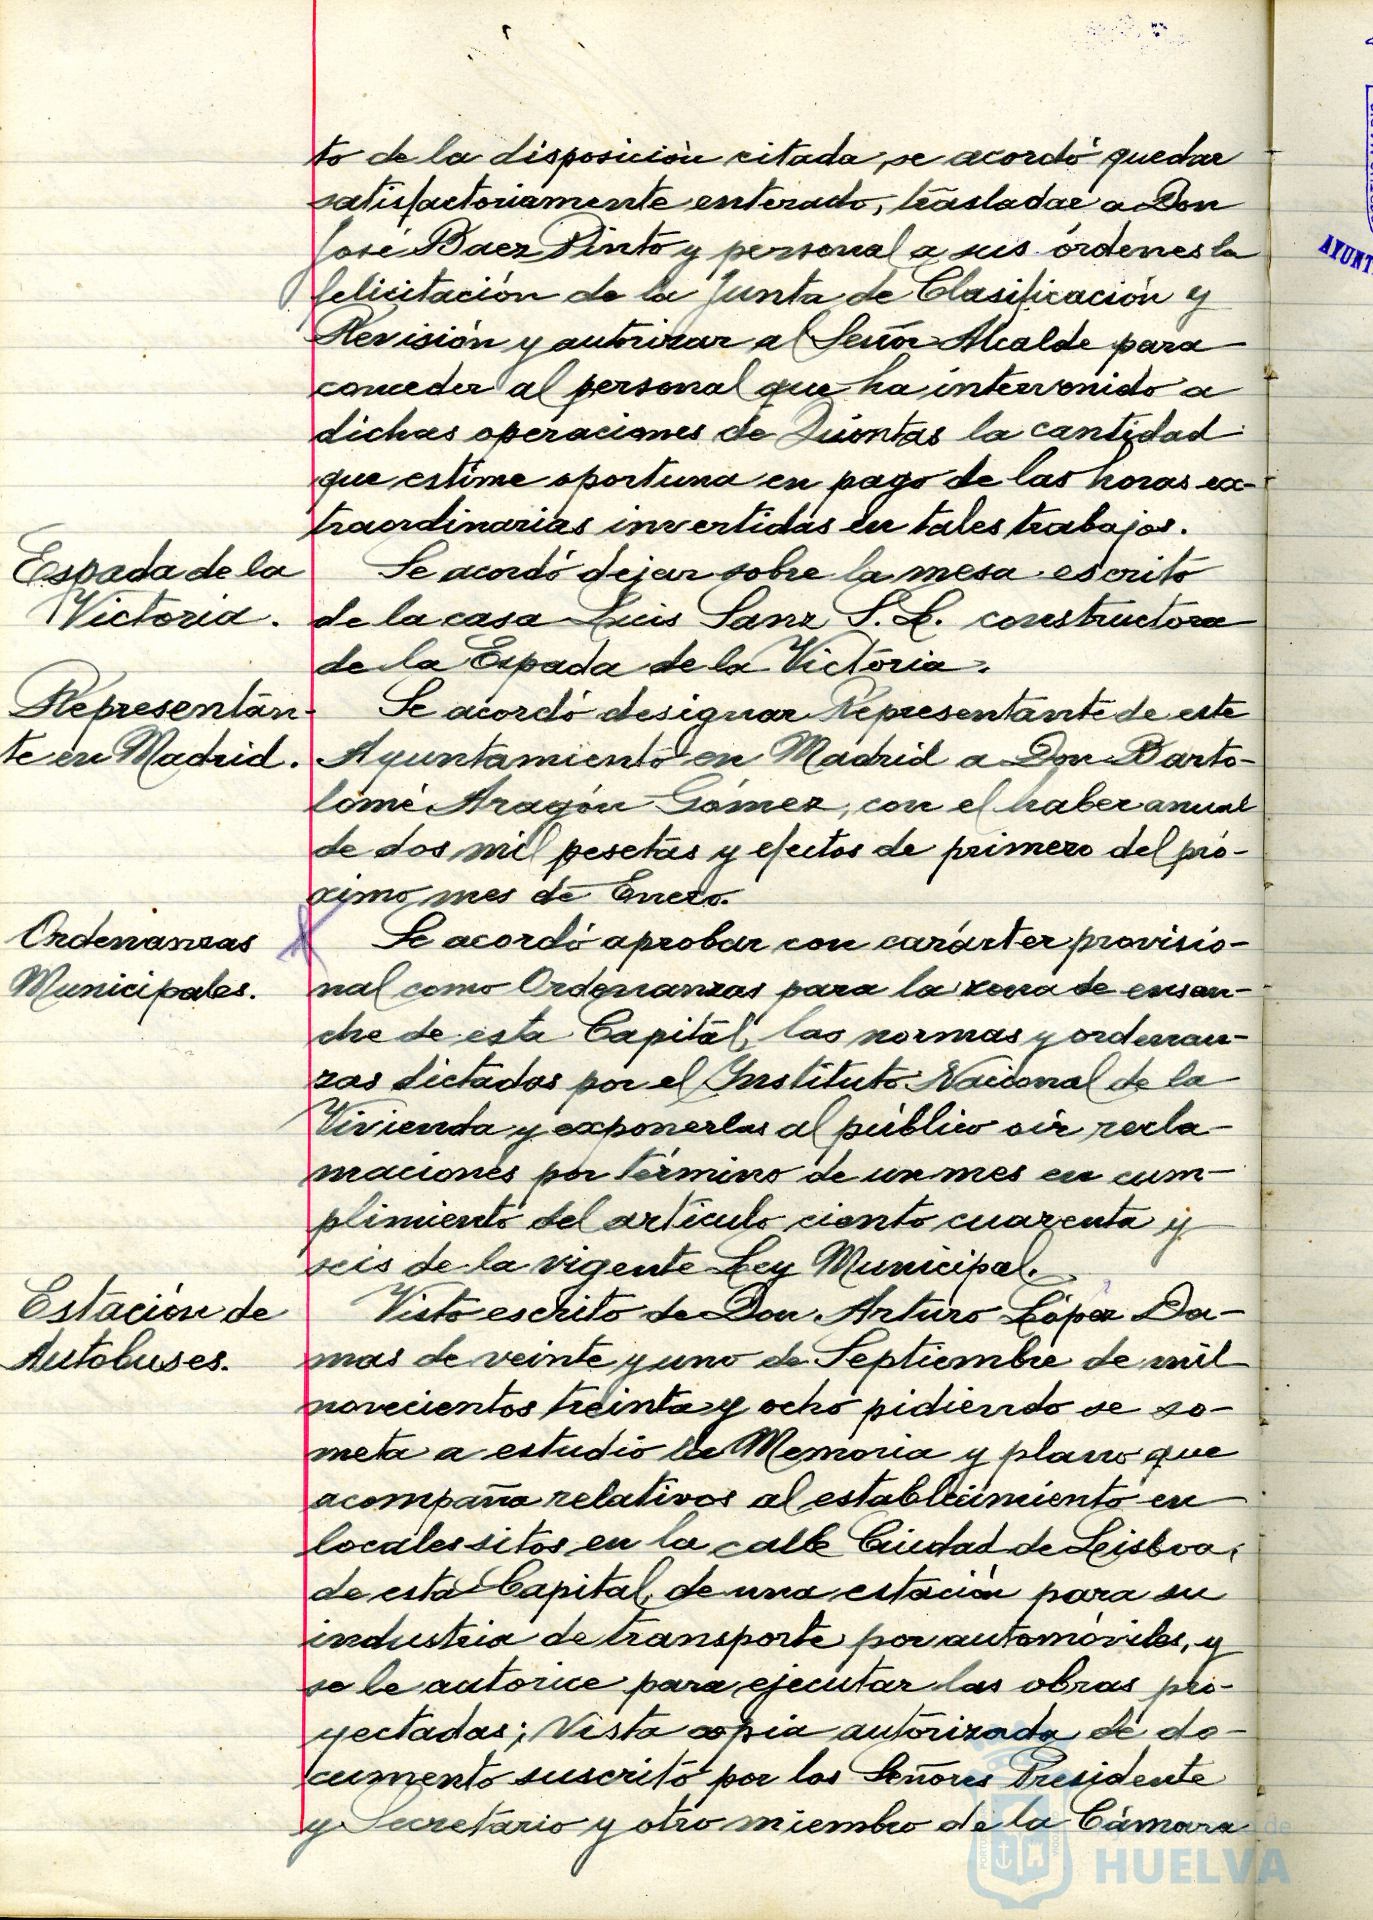 to de la disposición citada, se acordó quedar
satisfactoriamente enterado, trasladar a Don
José Baez Pinto y personal a sus órdenes la
felicitación de la Junta de Clasificación y
Revisión y autorizar al Señor Alcalde para
conceder al personal que ha intervenido a
dichas operaciones de Quintas la cantidad
que estime oportuna en pago de las horas ex-
traordinarias invertidas en tales trabajos.
Espada de la
Victoria.
Se acordó dejar sobre la mesa escrito
de la casa Luis Sanz S. L. constructora
de la Espada de la Victoria.
Representan-
te en Madrid.
Se acordó designar Representante de este
Ayuntamiento en Madrid a Don Barto-
lomé Aragón Gómez, con el haber anual
de dos mil pesetas y efectos de primero del pró-
ximo mes de Enero.
Ordenanzas
Municipales.
Se acordó aprobar con carácter provisio-
nal como Ordenanzas para la zona de ensan-
che de esta Capital, las normas y ordenan-
zas dictadas por el Instituto Nacional de la
Vivienda y exponerlas al público oir recla-
maciones por término de un mes en cum-
plimiento del artículo ciento cuarenta y
seis de la vigente Ley Municipal.
Estación de
Autobuses.
Visto escrito de Don Arturo López Da-
mas de veinte y uno de Septiembre de mil
novecientos treinta y ocho pidiendo se so-
meta a estudio la Memoria y plano que
acompaña relativos al establecimiento en
locales sitos en la calle Ciudad de Lisboa,
de esta Capital, de una estación para su
industria de transporte por automóviles, y
se le autorice para ejecutar las obras pro-
yectadas; Vista copia autorizada de do-
cumento suscrito por los Señores Presidente
y Secretario y otro miembro de la Cámara
HUELVA